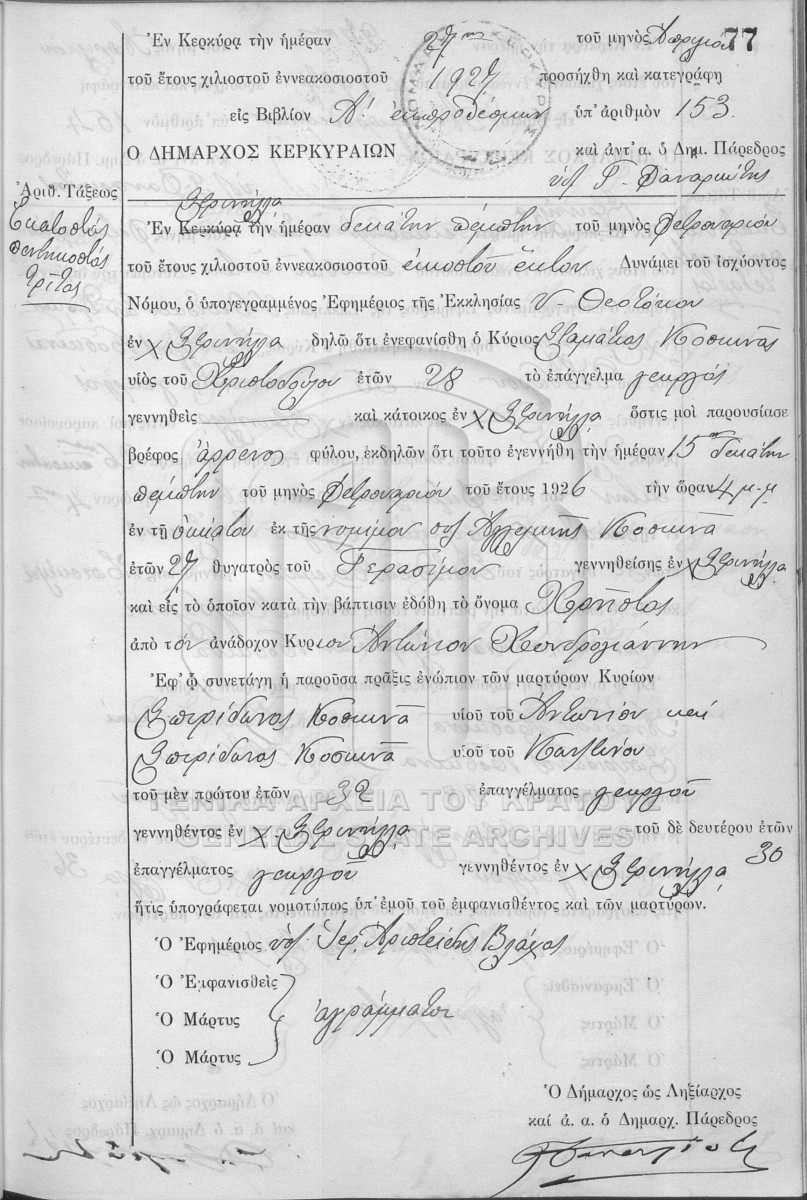 77
Ἐν Κερκύρᾳ τὴν ἡμέραν 27ην τοῦ μηνὸς Ἀπριλίου
τοῦ ἔτους χιλιοστοῦ ἐννεακοσιοστοῦ 1927 προσήχθη καὶ κατεγράφη
εἰς Βιβλίον Α! ἐκπροθέσμων ὑπ' ἀριθμὸν 153
Ο ΔΗΜΑΡΧΟΣ ΚΕΡΚΥΡΑΙΩΝ καὶ ἀντ' α. ὁ Δημ. Πάρεδρος
Ἀριθ. Τάξεως
Ἑκατοστός
πεντηκοστός
τρίτος
Ἐν Κερκύρᾳ τὴν ἡμέραν δεκάτην πέμπτην τοῦ μηνὸς Φεβρουαρίου
τοῦ ἔτους χιλιοστοῦ ἐννεακοσιοστοῦ εἰκοστοῦ ἕκτου Δυνάμει τοῦ ἰσχύοντος
Νόμου, ὁ ὑπογεγραμμένος Ἐφημέριος τῆς Ἐκκλησίας Υ. Θεοτόκου
ἐν χ Στρινήλλα δηλῶ ὅτι ἐνεφανίσθη ὁ Κύριος Σταμάτιος Κοσκινᾶς
υἱὸς τοῦ Χριστοδούλου ἐτῶν 28 τὸ ἐπάγγελμα γεωργός
γεννηθεὶς καὶ κάτοικος ἐν χ Στρινήλλα ὅστις μοὶ παρουσίασε
βρέφος ἄρρενος φύλου, ἐκδηλῶν ὅτι τοῦτο ἐγεννήθη τὴν ἡμέραν 15ην δεκάτην
πέμπτην τοῦ μηνὸς Φεβρουαρίου τοῦ ἔτους 1926 τὴν ὥραν 4 μ.μ
ἐν τῇ οἰκίᾳ του ἐκ τῆς νομίμου συζ Ἀγγελικῆς Κοσκινᾶ
ἐτῶν 27 θυγατρὸς τοῦ Γερασίμου γεννηθείσης ἐν χ Στρινήλλα
καὶ εἰς τὸ ὁποῖον κατὰ τὴν βάπτισιν ἐδόθη τὸ ὄνομα Χρῆστος
ἀπὸ τὸν ἀνάδοχον Κυριον Ἀντώνιον Χονδρογιάννην
Ἐφ' ᾧ συνετάγη ἡ παροῦσα πρᾶξις ἐνώπιον τῶν μαρτύρων Κυρίων
Σπυρίδωνος Κοσκινᾶ υἱοῦ τοῦ Ἀντωνίου καὶ
Σπυρίδωνος Κοσκινᾶ υἱοῦ τοῦ
τοῦ μὲν πρώτου ἐτῶν 32 ἐπαγγέλματος γεωργοῦ
ΓΕΝΙΚΑ ΑΡΧΕΙΑ ΤΟΥ ΚΡΑΤΟΥΣ
GENERAL STATE ARCHIVES
γεννηθέντος ἐν χ. Στρινήλλα τοῦ δὲ δευτέρου ἐτῶν 30
ἐπαγγέλματος γεωργοῦ γεννηθέντος ἐν χ Στρινήλλα
ἥτις ὑπογράφεται νομοτύπως ὑπ' ἐμοῦ τοῦ ἐμφανισθέντος καὶ τῶν μαρτύρων.
Ὁ Ἐφημέριος ὑπ. Ἱερ. Ἀριστείδης Βλάχος
Ὁ Ἐμφανισθεὶς
Ὁ Μάρτυς ἀγράμματοι
Ὁ Μάρτυς
Ὁ Δήμαρχος ὡς Ληξίαρχος
καὶ ἀ. α. ὁ Δημαρχ. Πάρεδρος